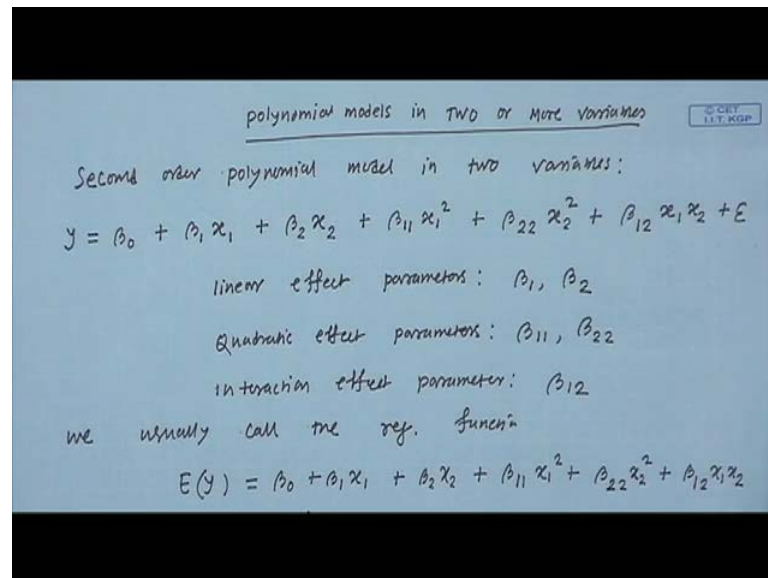 polynomial models in TWO or More variables
© CET
I.I.T. KGP
Second order polynomial model in two variables:
y = β₀ + β₁x₁ + β₂x₂ + β₁₁x₁² + β₂₂x₂² + β₁₂x₁x₂ + ε
linear effect parameters: β₁, β₂
Quadratic effect parameters: β₁₁, β₂₂
interaction effect parameter: β₁₂
we usually call the reg. functn
E(y) = β₀ + β₁x₁ + β₂x₂ + β₁₁x₁² + β₂₂x₂² + β₁₂x₁x₂